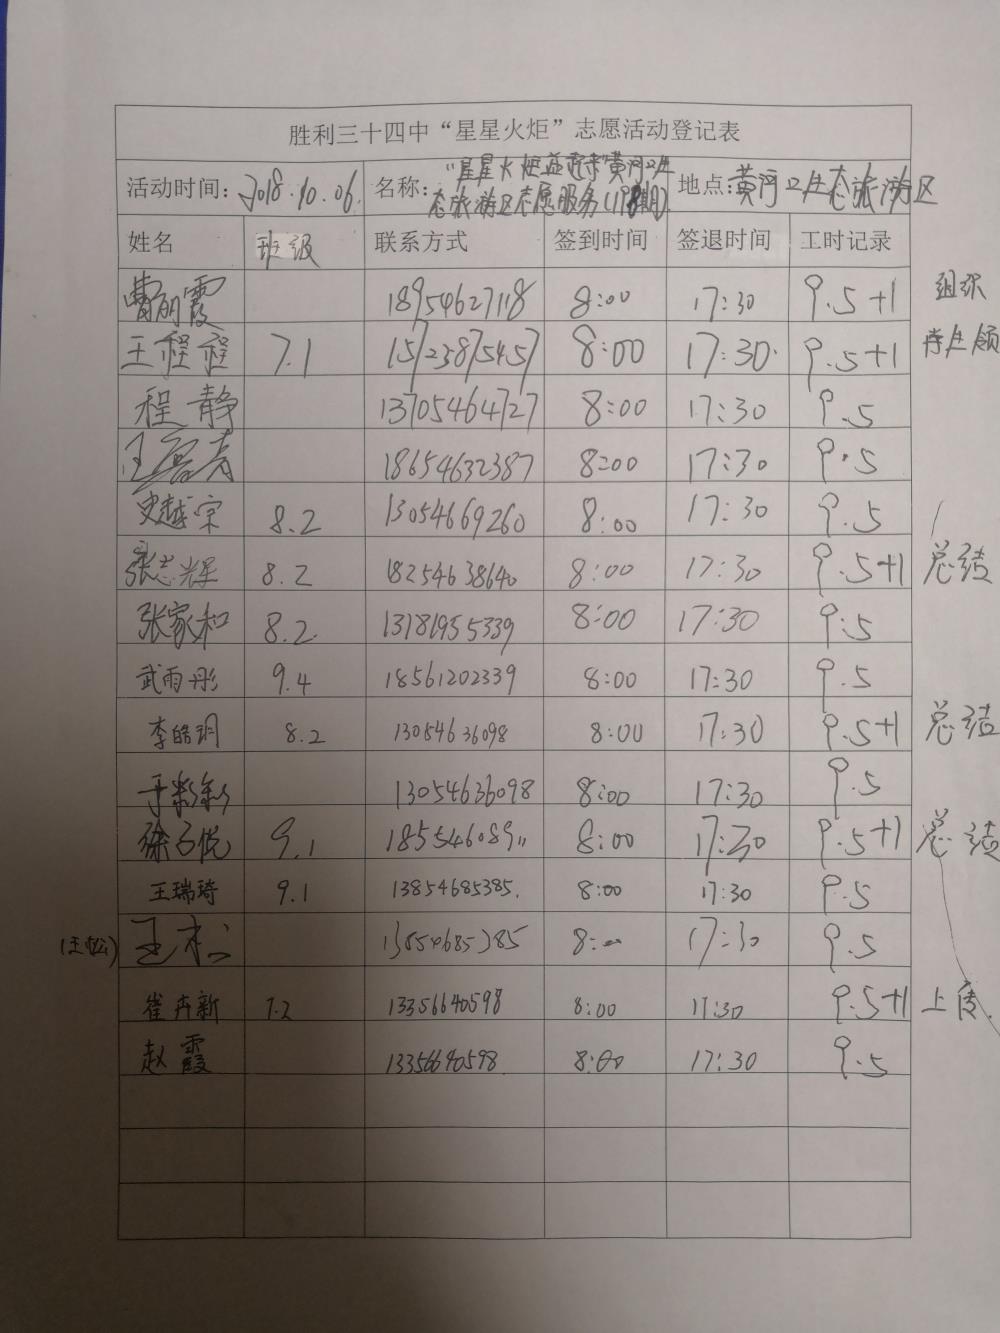 胜利三十四中“星星火炬”志愿活动登记表
活动时间: 2018.10.06 名称: “星星火炬益起来”黄河口生态旅游区志愿服务(18期) 地点: 黄河口生态旅游区
姓名 班级 联系方式 签到时间 签退时间 工时记录
曹丽霞 18954627118 8:00 17:30 9.5+1 组织
王程程 7.1 15723875457 8:00 17:30 9.5+1
程静 13705464727 8:00 17:30 9.5
王 18654632387 8:00 17:30 9.5
史越宗 8.2 13054669260 8:00 17:30 9.5
张志辉 8.2 18254638640 8:00 17:30 9.5+1 总结
张家和 8.2 13181955339 8:00 17:30 9.5
武雨彤 9.4 18561202339 8:00 17:30 9.5
李皓玥 8.2 13054636098 8:00 17:30 9.5+1 总结
于彩彩 13054636098 8:00 17:30 9.5
徐子悦 9.1 18554608911 8:00 17:30 9.5+1 总结
王瑞琦 9.1 13854685385. 8:00 17:30 9.5
(王松) 王松 13854685385 8:00 17:30 9.5
崔卉新 7.2 13356640598 8:00 17:30 9.5+1 上传.
赵霞 13356640598 8:00 17:30 9.5